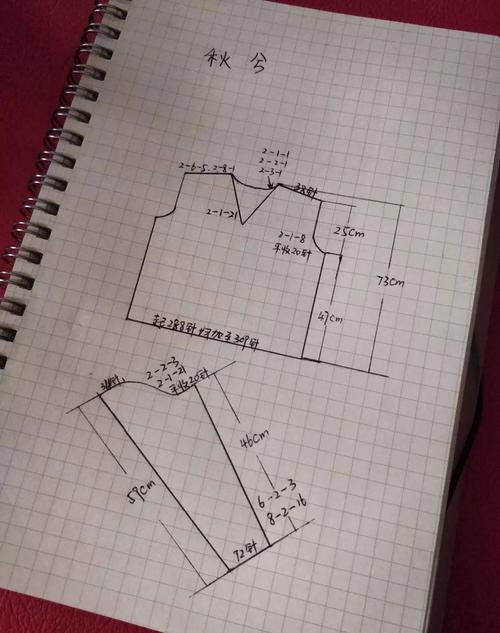 秋兮
2-1-1
2-2-1
2-3-1
2-6-5. 2-8-1
38针
2-1-21
2-1-8
平收20针
25cm
73cm
47cm
起288针 均加至309针
2-2-3
2-1-21
平收20针
46cm
59cm
6-2-3
8-2-16
72针